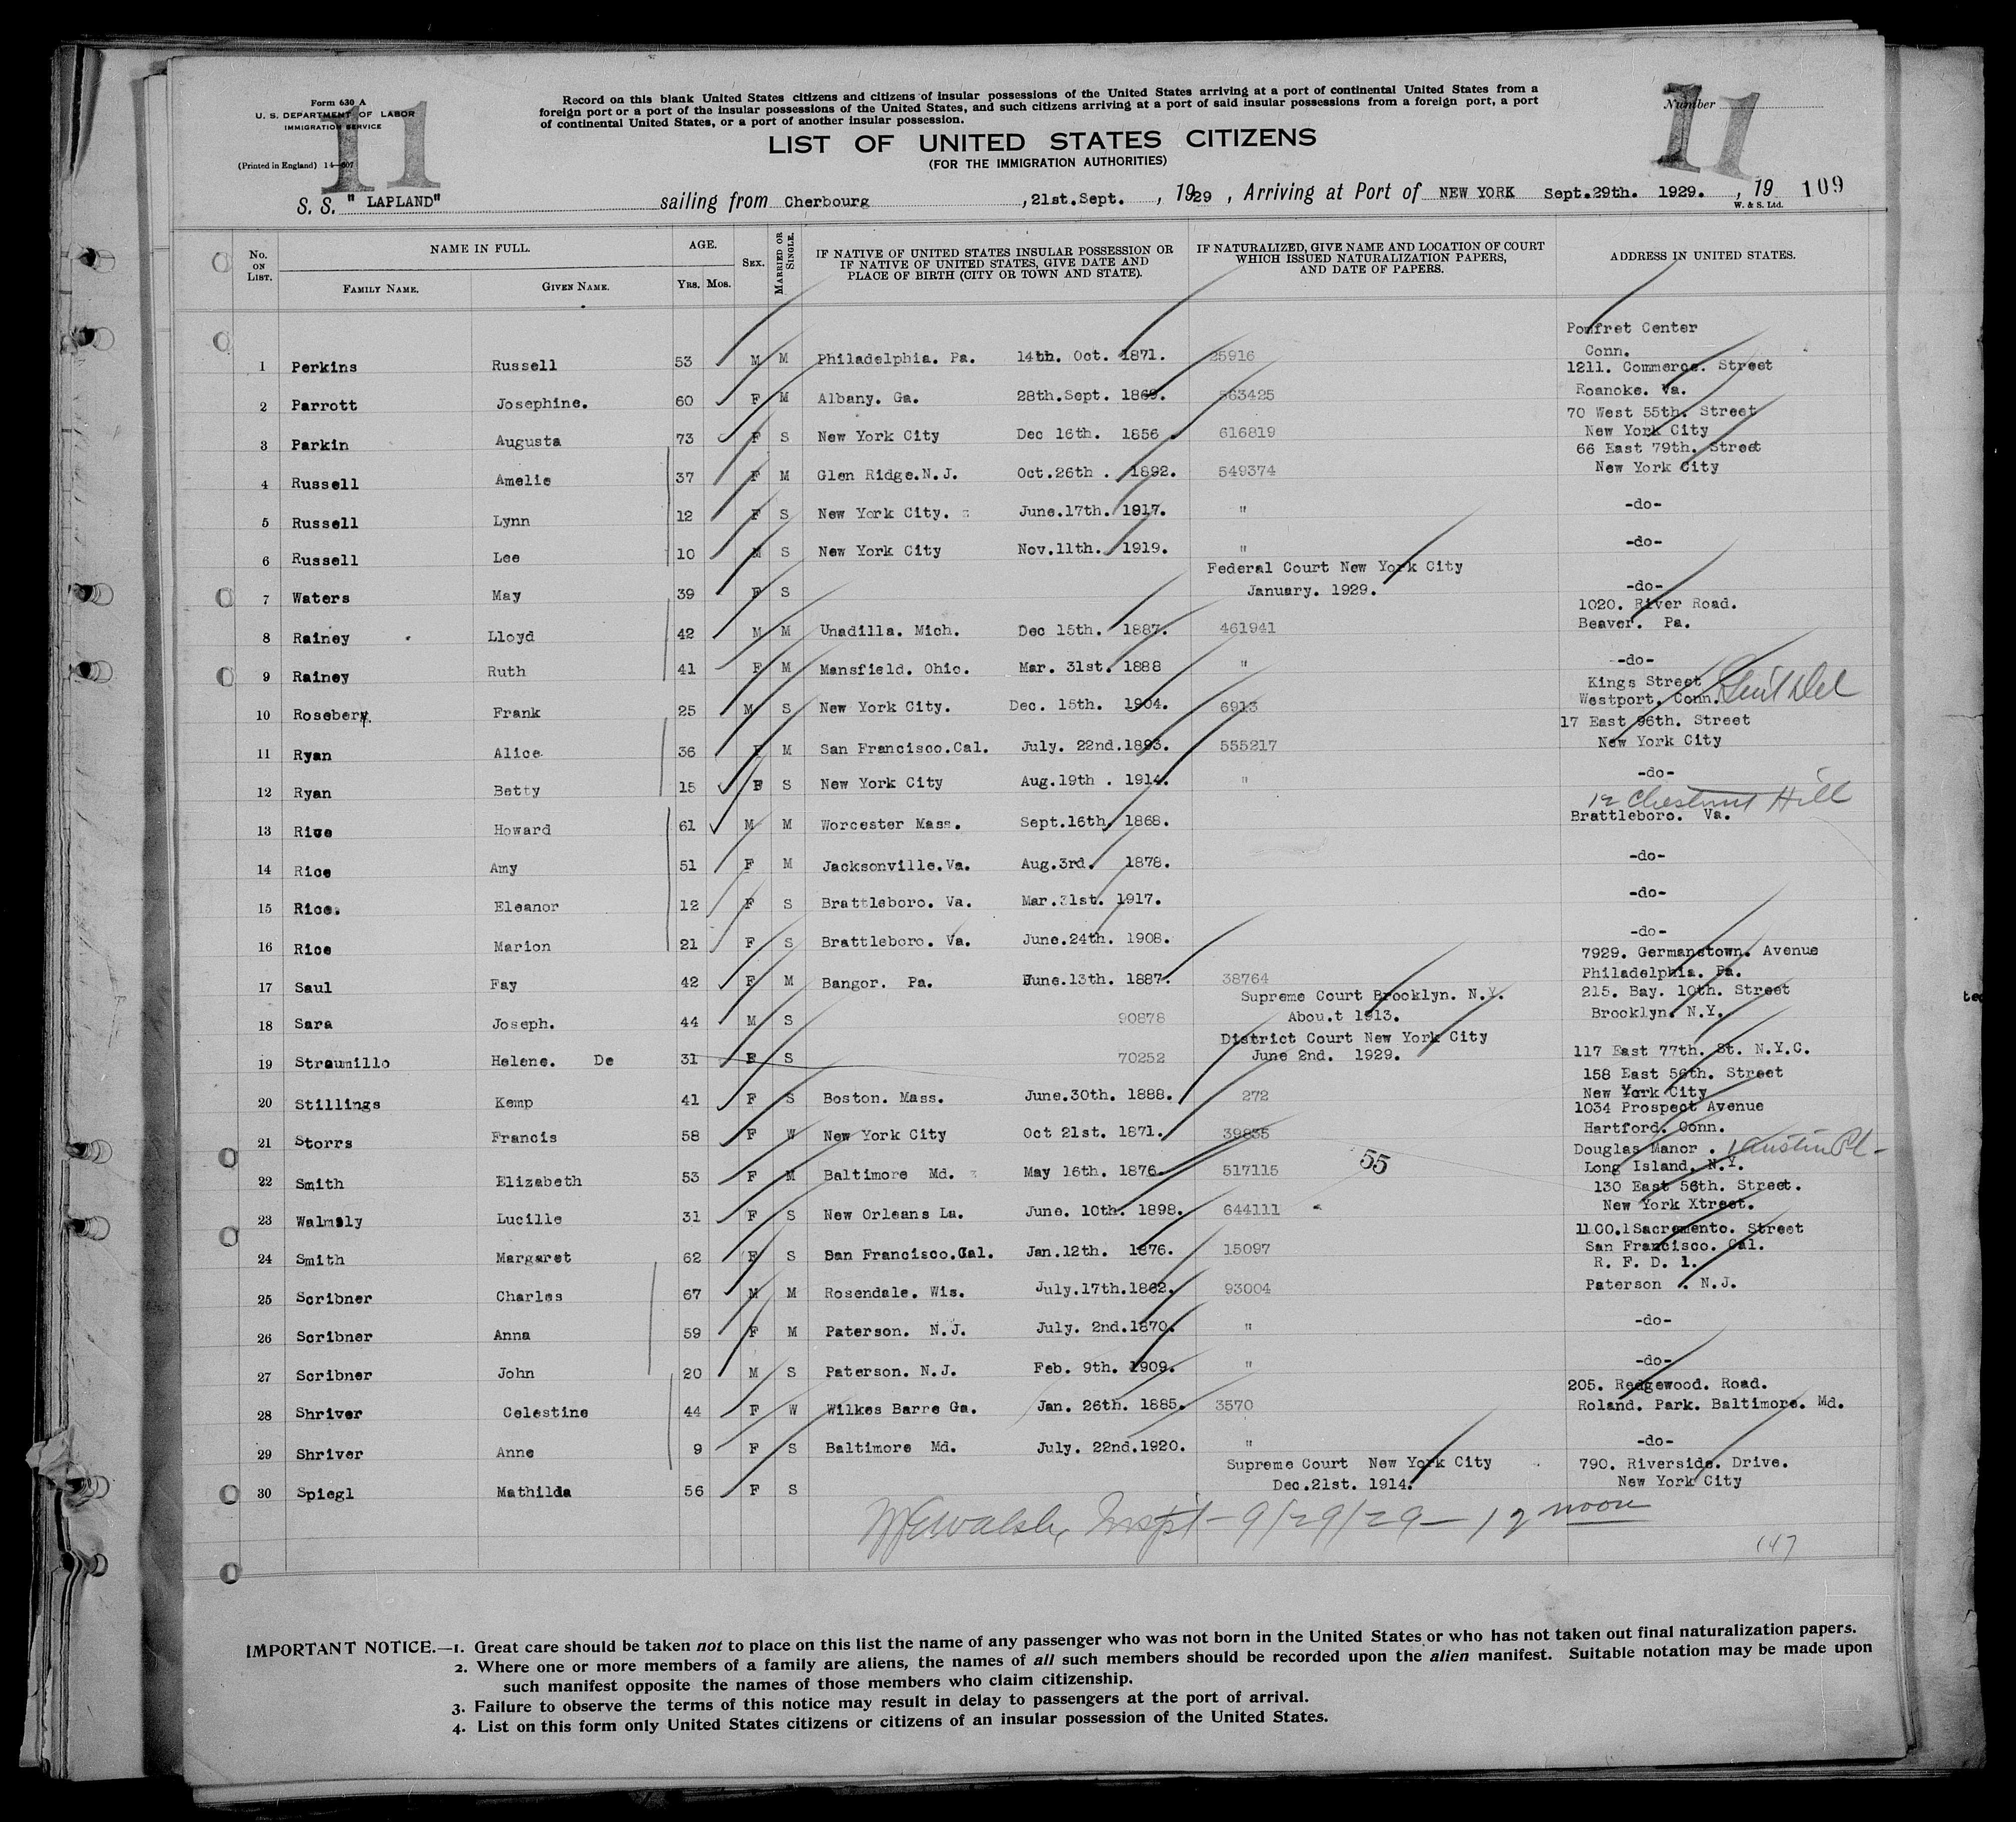 Form 630 A
U. S. DEPARTMENT OF LABOR
IMMIGRATION SERVICE
(Printed in England) 14—607
11
Record on this blank United States citizens and citizens of insular possessions of the United States arriving at a port of continental United States from a
foreign port or a port of the insular possessions of the United States, and such citizens arriving at a port of said insular possessions from a foreign port, a port
of continental United States, or a port of another insular possession.
Number
11
LIST OF UNITED STATES CITIZENS
(FOR THE IMMIGRATION AUTHORITIES)
S. S. "LAPLAND" sailing from Cherbourg, 21st.Sept., 1929, Arriving at Port of NEW YORK Sept.29th. 1929., 19 109
W. & S. Ltd.
No. ON LIST. NAME IN FULL. FAMILY NAME. GIVEN NAME. AGE. YRS. MOS. SEX. MARRIED OR SINGLE. IF NATIVE OF UNITED STATES INSULAR POSSESSION OR IF NATIVE OF UNITED STATES, GIVE DATE AND PLACE OF BIRTH (CITY OR TOWN AND STATE). IF NATURALIZED, GIVE NAME AND LOCATION OF COURT WHICH ISSUED NATURALIZATION PAPERS, AND DATE OF PAPERS. ADDRESS IN UNITED STATES.
1 Perkins Russell 53 M M Philadelphia. Pa. 14th. Oct. 1871. 25916 Pomfret Center Conn.
2 Parrott Josephine. 60 F M Albany. Ga. 28th.Sept. 1869. 563425 1211. Commerce. Street Roanoke. Va.
3 Parkin Augusta 73 F S New York City Dec 16th. 1856 616819 70 West 55th. Street New York City
4 Russell Amelie 37 F M Glen Ridge.N.J. Oct.26th . 1892. 549374 66 East 79th. Street New York City
5 Russell Lynn 12 F S New York City. June.17th. 1917. " -do-
6 Russell Lee 10 M S New York City Nov.11th. 1919. " -do-
7 Waters May 39 F S Federal Court New York City January. 1929. -do-
8 Rainey Lloyd 42 M M Unadilla. Mich. Dec 15th. 1887. 461941 1020. River Road. Beaver. Pa.
9 Rainey Ruth 41 F M Mansfield. Ohio. Mar. 31st. 1888 " -do-
10 Rosebery. Frank 25 M S New York City. Dec. 15th. 1904. 6913 Kings Street Westport. Conn.
11 Ryan Alice 36 F M San Francisco.Cal. July. 22nd.1893. 555217 17 East 96th. Street New York City
12 Ryan Betty 15 F S New York City Aug.19th . 1914. " -do-
13 Rice Howard 61 M M Worcester Mass. Sept.16th. 1868. 12 Chestnut Hill Brattleboro. Va.
14 Rice Amy 51 F M Jacksonville.Va. Aug.3rd. 1878. -do-
15 Rice. Eleanor 12 F S Brattleboro. Va. Mar.31st. 1917. -do-
16 Rice Marion 21 F S Brattleboro. Va. June.24th. 1908. -do-
17 Saul Fay 42 F M Bangor. Pa. June.13th. 1887. 38764 7929. Germanstown. Avenue Philadelphia. Pa.
18 Sara Joseph. 44 M S 90878 Supreme Court Brooklyn. N.Y. Abou.t 1913. 215. Bay. 10th. Street Brooklyn. N.Y.
19 Straumillo Helene. De 31 F S 70252 District Court New York City June 2nd. 1929. 117 East 77th. St. N.Y.C.
20 Stillings Kemp 41 F S Boston. Mass. June.30th. 1888. 272 158 East 56th. Street New York City
21 Storrs Francis 58 F W New York City Oct 21st. 1871. 39835 1034 Prospect Avenue Hartford. Conn.
22 Smith Elizabeth 53 F M Baltimore Md. May 16th. 1876. 517115 55 Douglas Manor . 1 Austin Pl - Long Island. N.Y.
23 Walmsly Lucille 31 F S New Orleans La. June. 10th. 1898. 644111 130 East 56th. Street. New York Xtreet.
24 Smith Margaret 62 F S San Francisco.Cal. Jan.12th. 1876. 15097 1100.1Sacremento. Street San Francisco. Cal.
25 Scribner Charles 67 M M Rosendale. Wis. July.17th.1862. 93004 R. F. D. 1. Paterson . N.J.
26 Scribner Anna 59 F M Paterson. N.J. July. 2nd.1870. " -do-
27 Scribner John 20 M S Paterson. N.J. Feb. 9th. 1909. " -do-
28 Shriver Celestine 44 F W Wilkes Barre Ga. Jan. 26th. 1885. 3570 205. Redgewood. Road. Roland. Park. Baltimore. Md.
29 Shriver Anne 9 F S Baltimore Md. July. 22nd.1920. " -do-
30 Spiegl Mathilda 56 F S Supreme Court New York City Dec.21st. 1914. 790. Riverside. Drive. New York City
Walsh, Inspt - 9/29/29 - 12 noon
147
IMPORTANT NOTICE.—1. Great care should be taken not to place on this list the name of any passenger who was not born in the United States or who has not taken out final naturalization papers.
2. Where one or more members of a family are aliens, the names of all such members should be recorded upon the alien manifest. Suitable notation may be made upon
such manifest opposite the names of those members who claim citizenship.
3. Failure to observe the terms of this notice may result in delay to passengers at the port of arrival.
4. List on this form only United States citizens or citizens of an insular possession of the United States.